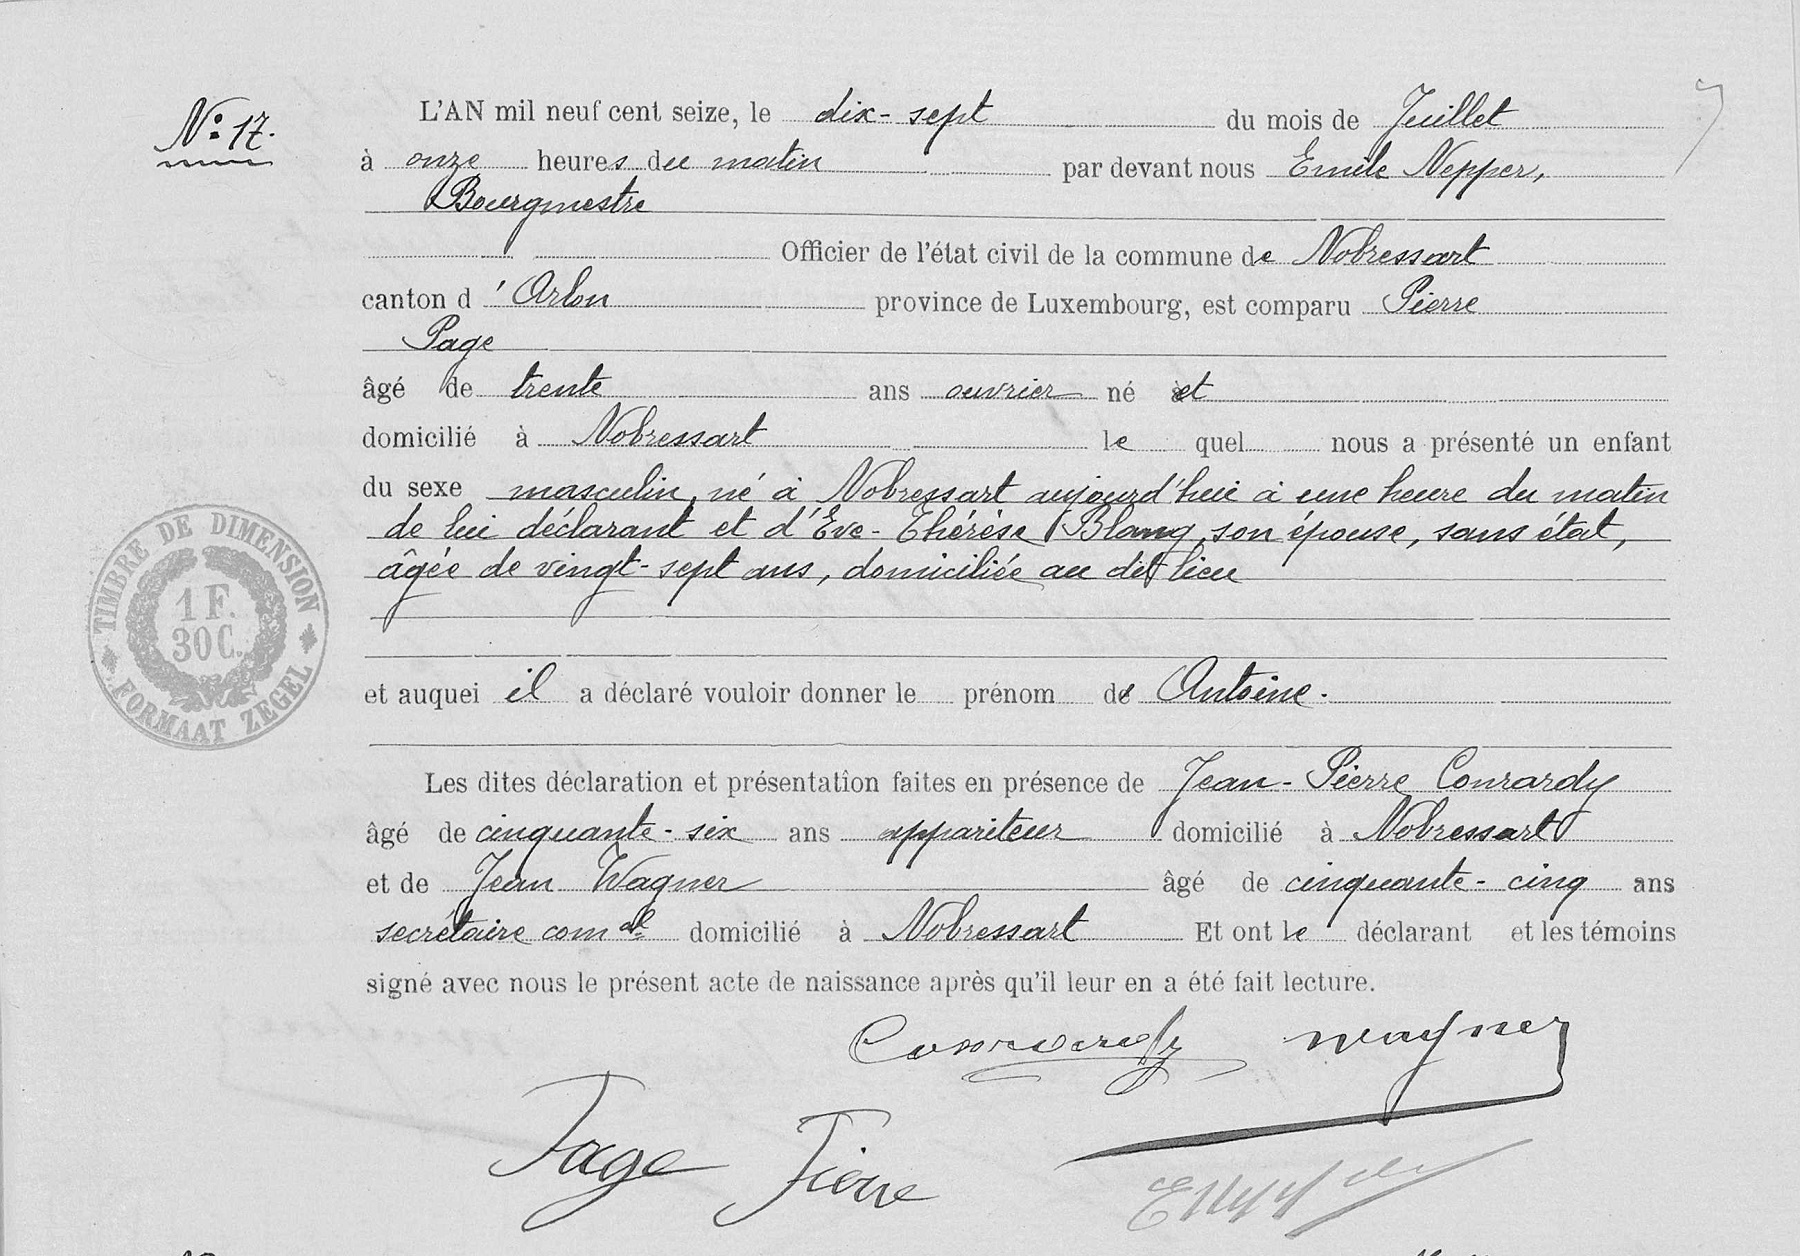 N° 17.
L'AN mil neuf cent seize, le dix-sept du mois de Juillet
à onze heures du matin par devant nous Emile Nepper,
Bourgmestre
Officier de l'état civil de la commune de Nobressart
canton d'Arlon province de Luxembourg, est comparu Pierre
Page
âgé de trente ans ouvrier né et
domicilié à Nobressart lequel nous a présenté un enfant
du sexe masculin, né à Nobressart aujourd'hui à une heure du matin
de lui déclarant et d'Eve-Thérèse Blang, son épouse, sans état,
âgée de vingt-sept ans, domiciliée au dit lieu
TIMBRE DE DIMENSION
1 F.
30 C.
FORMAAT ZEGEL
et auquel il a déclaré vouloir donner le prénom de Antoine.
Les dites déclaration et présentation faites en présence de Jean-Pierre Conrardy
âgé de cinquante-six ans appariteur domicilié à Nobressart
et de Jean Wagner âgé de cinquante-cinq ans
secrétaire comal domicilié à Nobressart Et ont le déclarant et les témoins
signé avec nous le présent acte de naissance après qu'il leur en a été fait lecture.
Conrardy Wagner
Page Pierre